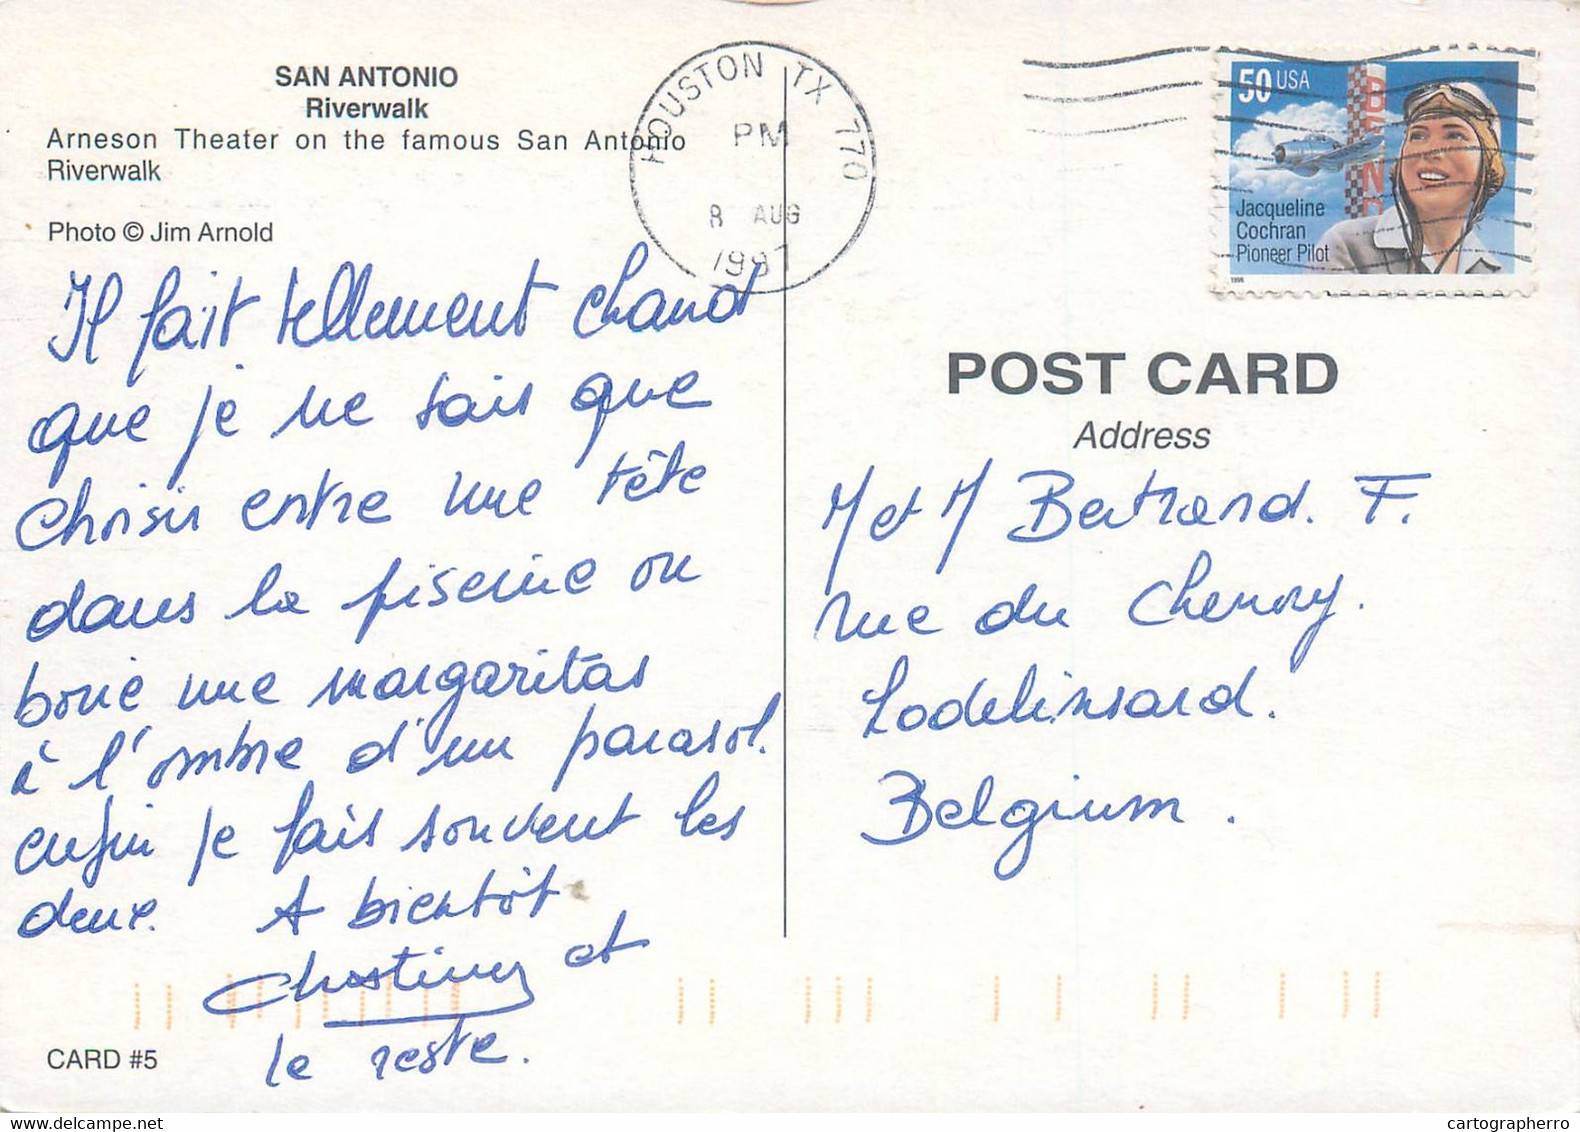 SAN ANTONIO
Riverwalk
Arneson Theater on the famous San Antonio
Riverwalk
Photo © Jim Arnold
HOUSTON TX 770
PM
8 AUG
1997
50 USA
BEND
Jacqueline
Cochran
Pioneer Pilot
1996
Il fait tellement chaud
que je ne sais que
choisir entre une tête
dans la piscine ou
boire une margaritas
à l'ombre d'un parasol.
enfin je fais souvent les
deux. A bientôt
et
le reste.
CARD #5
POST CARD
Address
M et M Bertrand. F.
rue du
Lodelinsard.
Belgium.
cartographerro